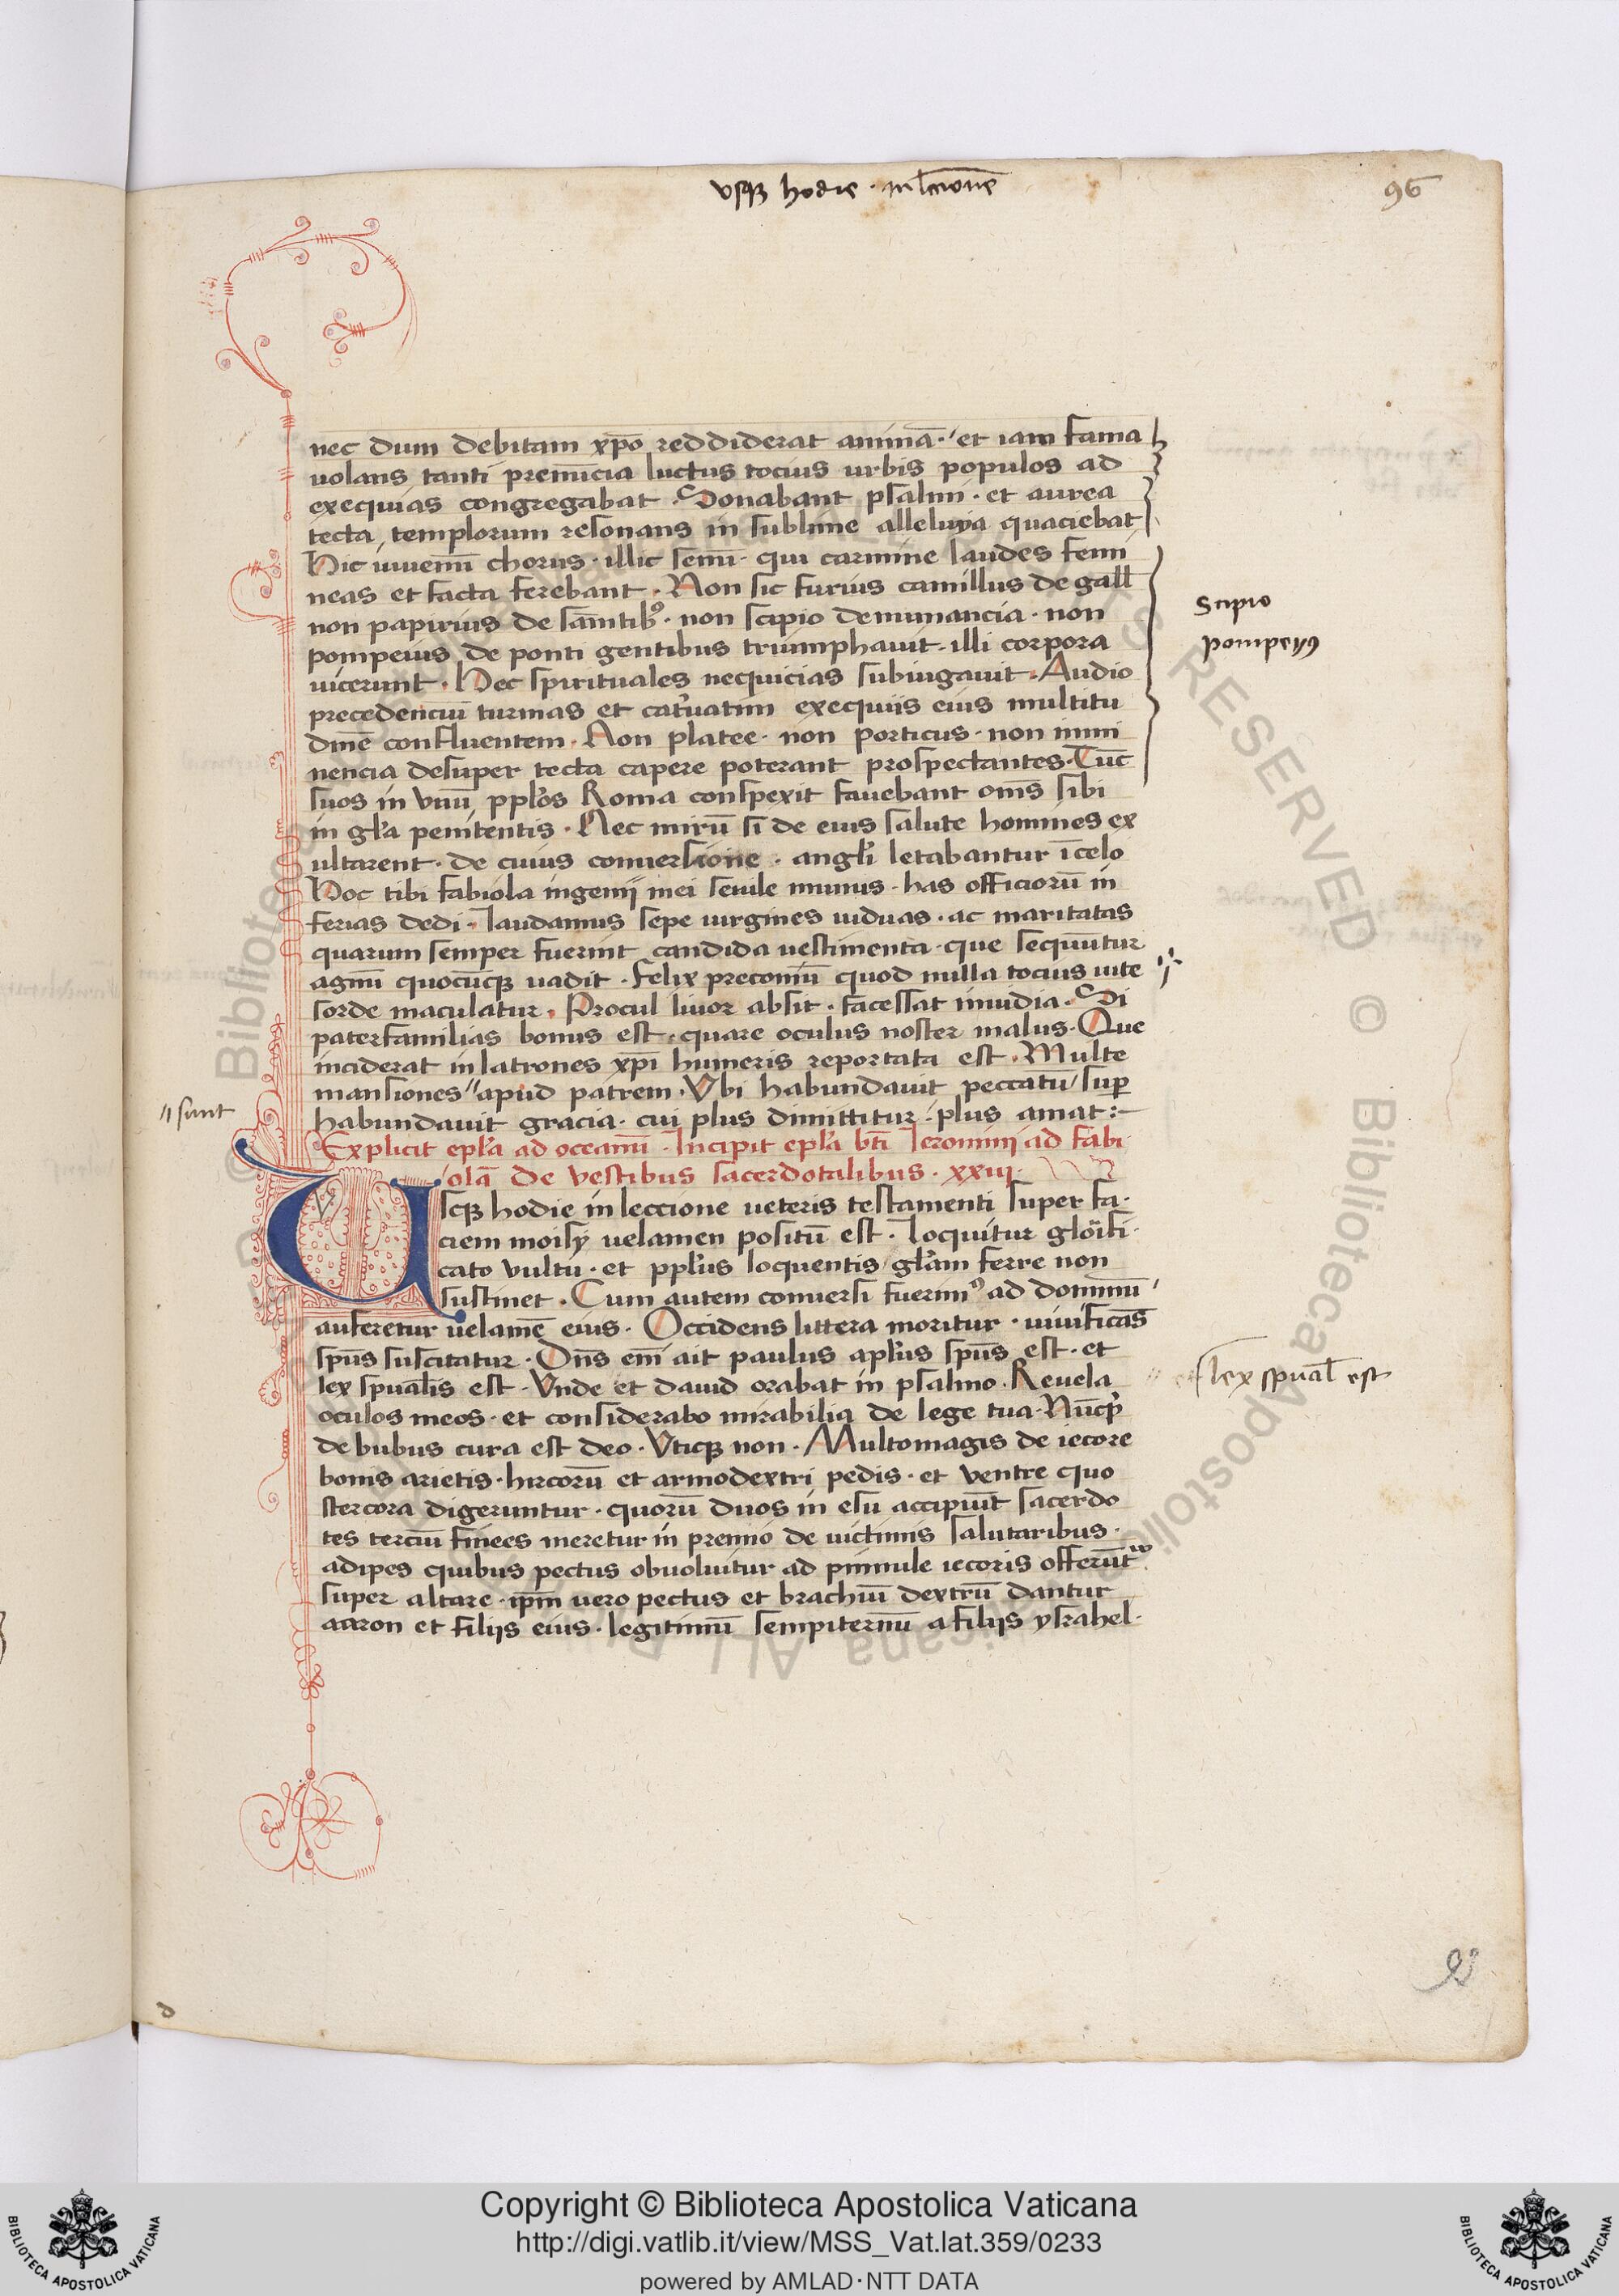 vsqꝫ hodie · in leccione
96
nec dum debitam xp̄o reddiderat animā · et iam fama
uolans tanti prenūcia luctus tocius urbis populos ad
exequias congregabat · Sonabant psalmi · et aurea
tecta templorum resonans in sublime alleluya quaciebat
Hic iuuenū chorus · illic senū · qui carmine laudes femi
neas et facta ferebant · Non sic furius camillus de gall
non papirius de sāmtibꝰ · non scipio de numancia · non
pompeius de ponti gentibus triumphauit · illi corpora
uicerunt · Hec spirituales nequicias subiugauit · Audio
precedenciū turmas et cat'uatim exequiis eius multitu
dinē confluentem · Non platee · non porticus · non immi
nencia desuper tecta capere poterant prospectantes · Tūc
suos in vnū ppl'os Roma conspexit fauebant om̄s sibi
in gl'a penitentis · Nec mirū si de eius salute homines ex
ultarent · de cuius conuersione · angl'i letabantur ī celo
Hoc tibi fabiola ingenij mei senile munus · has officiorū in
ferias dedi · laudamus sepe uirgines uiduas · ac maritatas
quarum semper fuerint candida uestimenta · que sequūtur
agnū quocūqꝫ uadit · Felix preconiū quod nulla tocius uite
sorde maculatur · Procul liuor absit · facessat inuidia · Si
paterfamilias bonus est · quare oculus noster malus · Que
inciderat in latrones xp̄i humeris reportata est · Multe
mansiones // apud patrem · Vbi habundauit peccatū / sup̄
habundauit gracia · cui plus dimittitur · plus amat :-
Explicit epl'a ad oceanū · Incipit epl'a bt̄i Ieronimi ad fabi
olā de vestibus sacerdotalibus · xxiij ·
Vsqꝫ hodie in leccione ueteris testamenti super fa·
ciem moisy uelamen positū est · loquitur glōifi·
cato vultu · et ppl'us loquentis gl'am ferre non
sustinet · Cum autem conuersi fuerimꝰ ad dominū
auferetur uelamē eius · Occidens littera moritur · uiuificās
sp̄us suscitatur · Dn̄s em̄ ait paulus apl'us sp̄us est · et
lex sp̄ualis est · Vnde et dauid orabat in psalmo · Reuela
oculos meos · et considerabo mirabilia de lege tua · Nūcqͥ
de bubus cura est deo · Vticqꝫ non · Multomagis de iecore
bouis arietis · hircorū et armodextri pedis · et ventre quo
stercora digeruntur · quorū duos in esu accipiūt sacerdo
tes terciū finees meretur in premio de uictimis salutaribus ·
adipes quibus pectus obuoluitur ad pinnule iecoris offerūt
super altare · ip̄m uero pectus et brachiū dextrū dantur
aaron et filijs eius · legitimū sempiternū a filijs ysrahel ·
Scipio
Pompeiꝰ
// sunt
lex sp̄ual' est
Copyright © Biblioteca Apostolica Vaticana
http://digi.vatlib.it/view/MSS_Vat.lat.359/0233
powered by AMLAD·NTT DATA
BIBLIOTECA APOSTOLICA VATICANA
BIBLIOTECA APOSTOLICA VATICANA